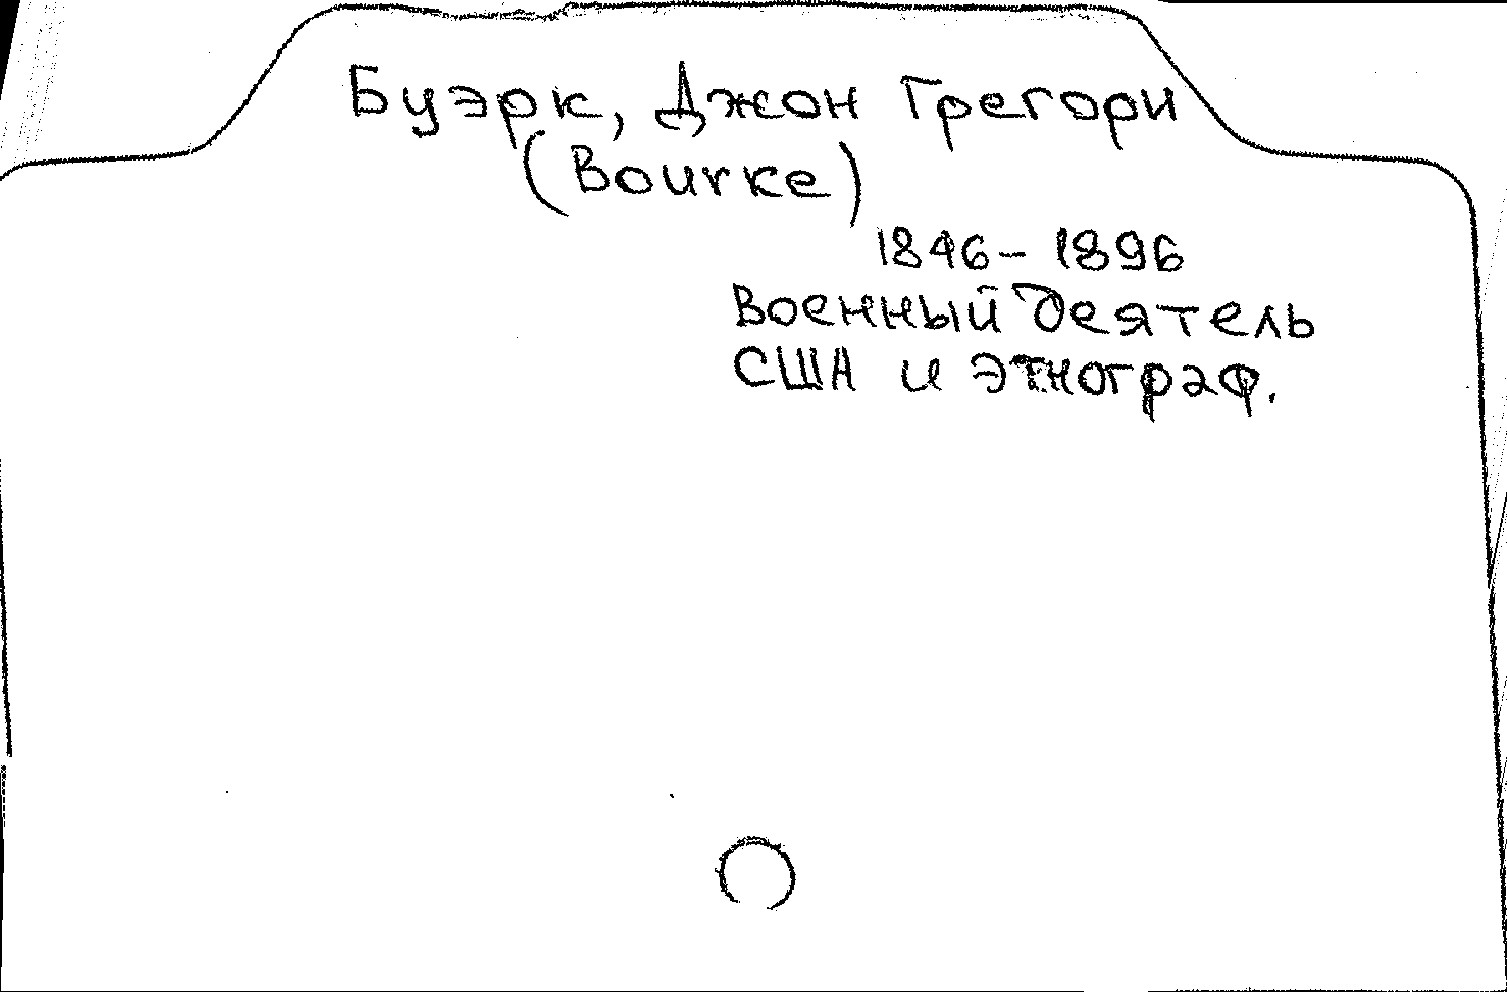 Буэрк, Джон Грегори
(Bourke)
1846-1896
Военный деятель
США и этнограф.